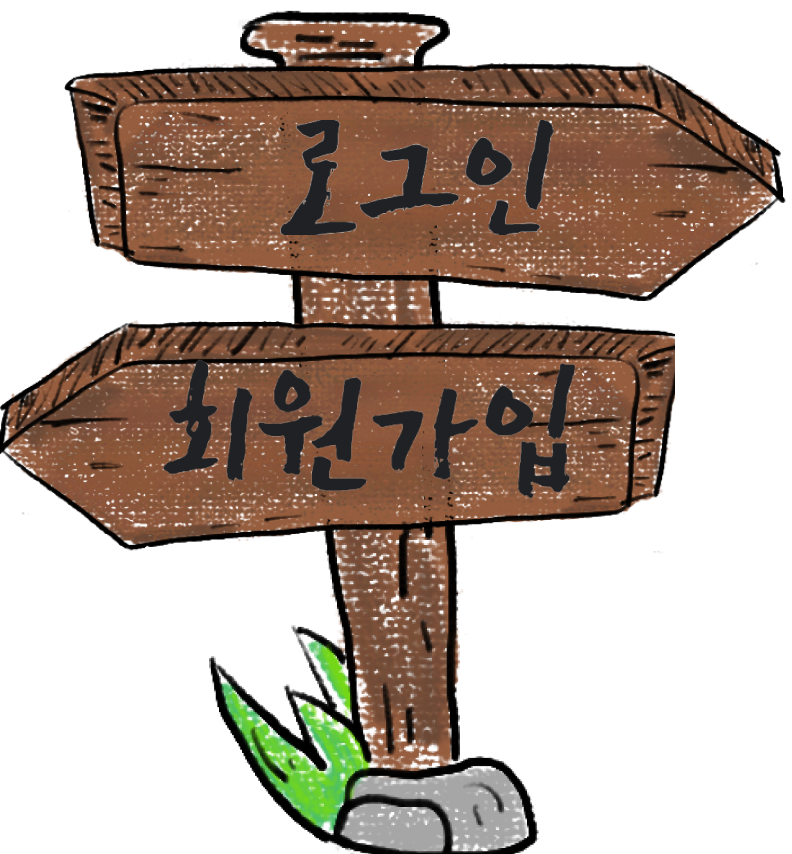 로그인
회원가입